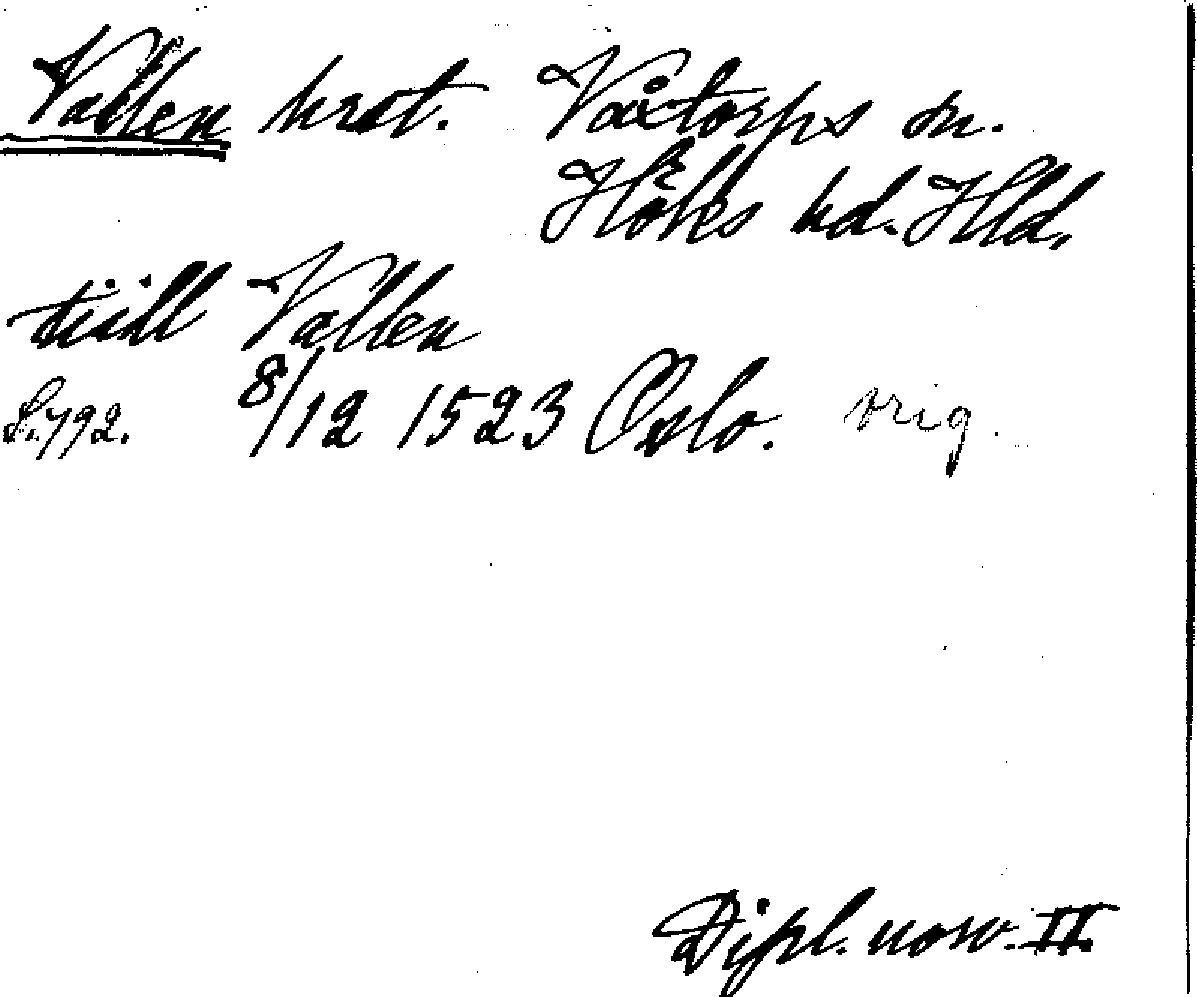 Vallen hrst. Våxtorps sn.
Höks hd. Hld.
tiill Vallen
S. 792. 8/12 1523 Oslo. orig.
Dipl. norv. II.